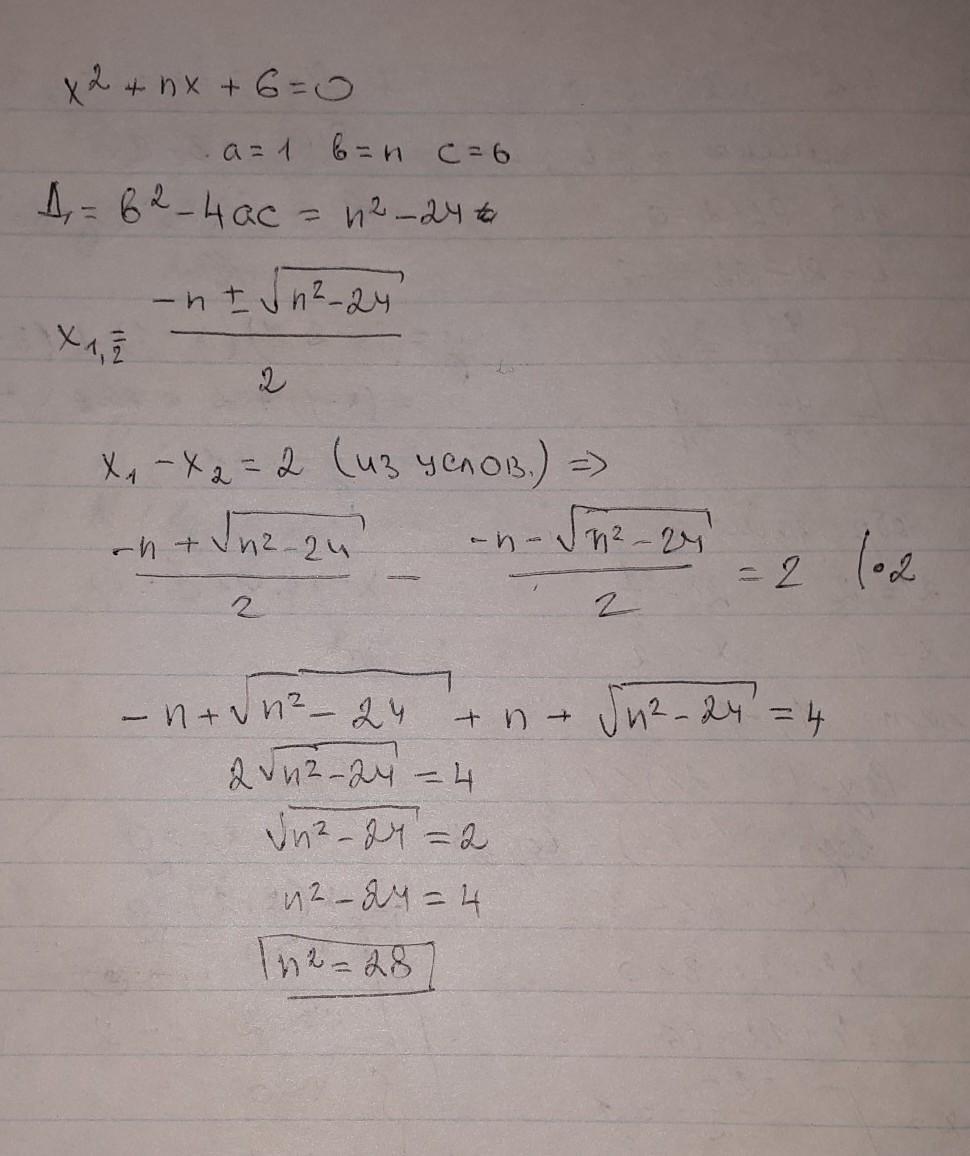 x² + nx + 6 = 0
a = 1 в = n c = 6
Д = в² - 4ac = n² - 24
x₁,₂ = (-n ± √(n² - 24)) / 2
x₁ - x₂ = 2 (из услов.) =>
(-n + √(n² - 24)) / 2 - (-n - √(n² - 24)) / 2 = 2 |•2
- n + √(n² - 24) + n + √(n² - 24) = 4
2√(n² - 24) = 4
√(n² - 24) = 2
n² - 24 = 4
n² = 28